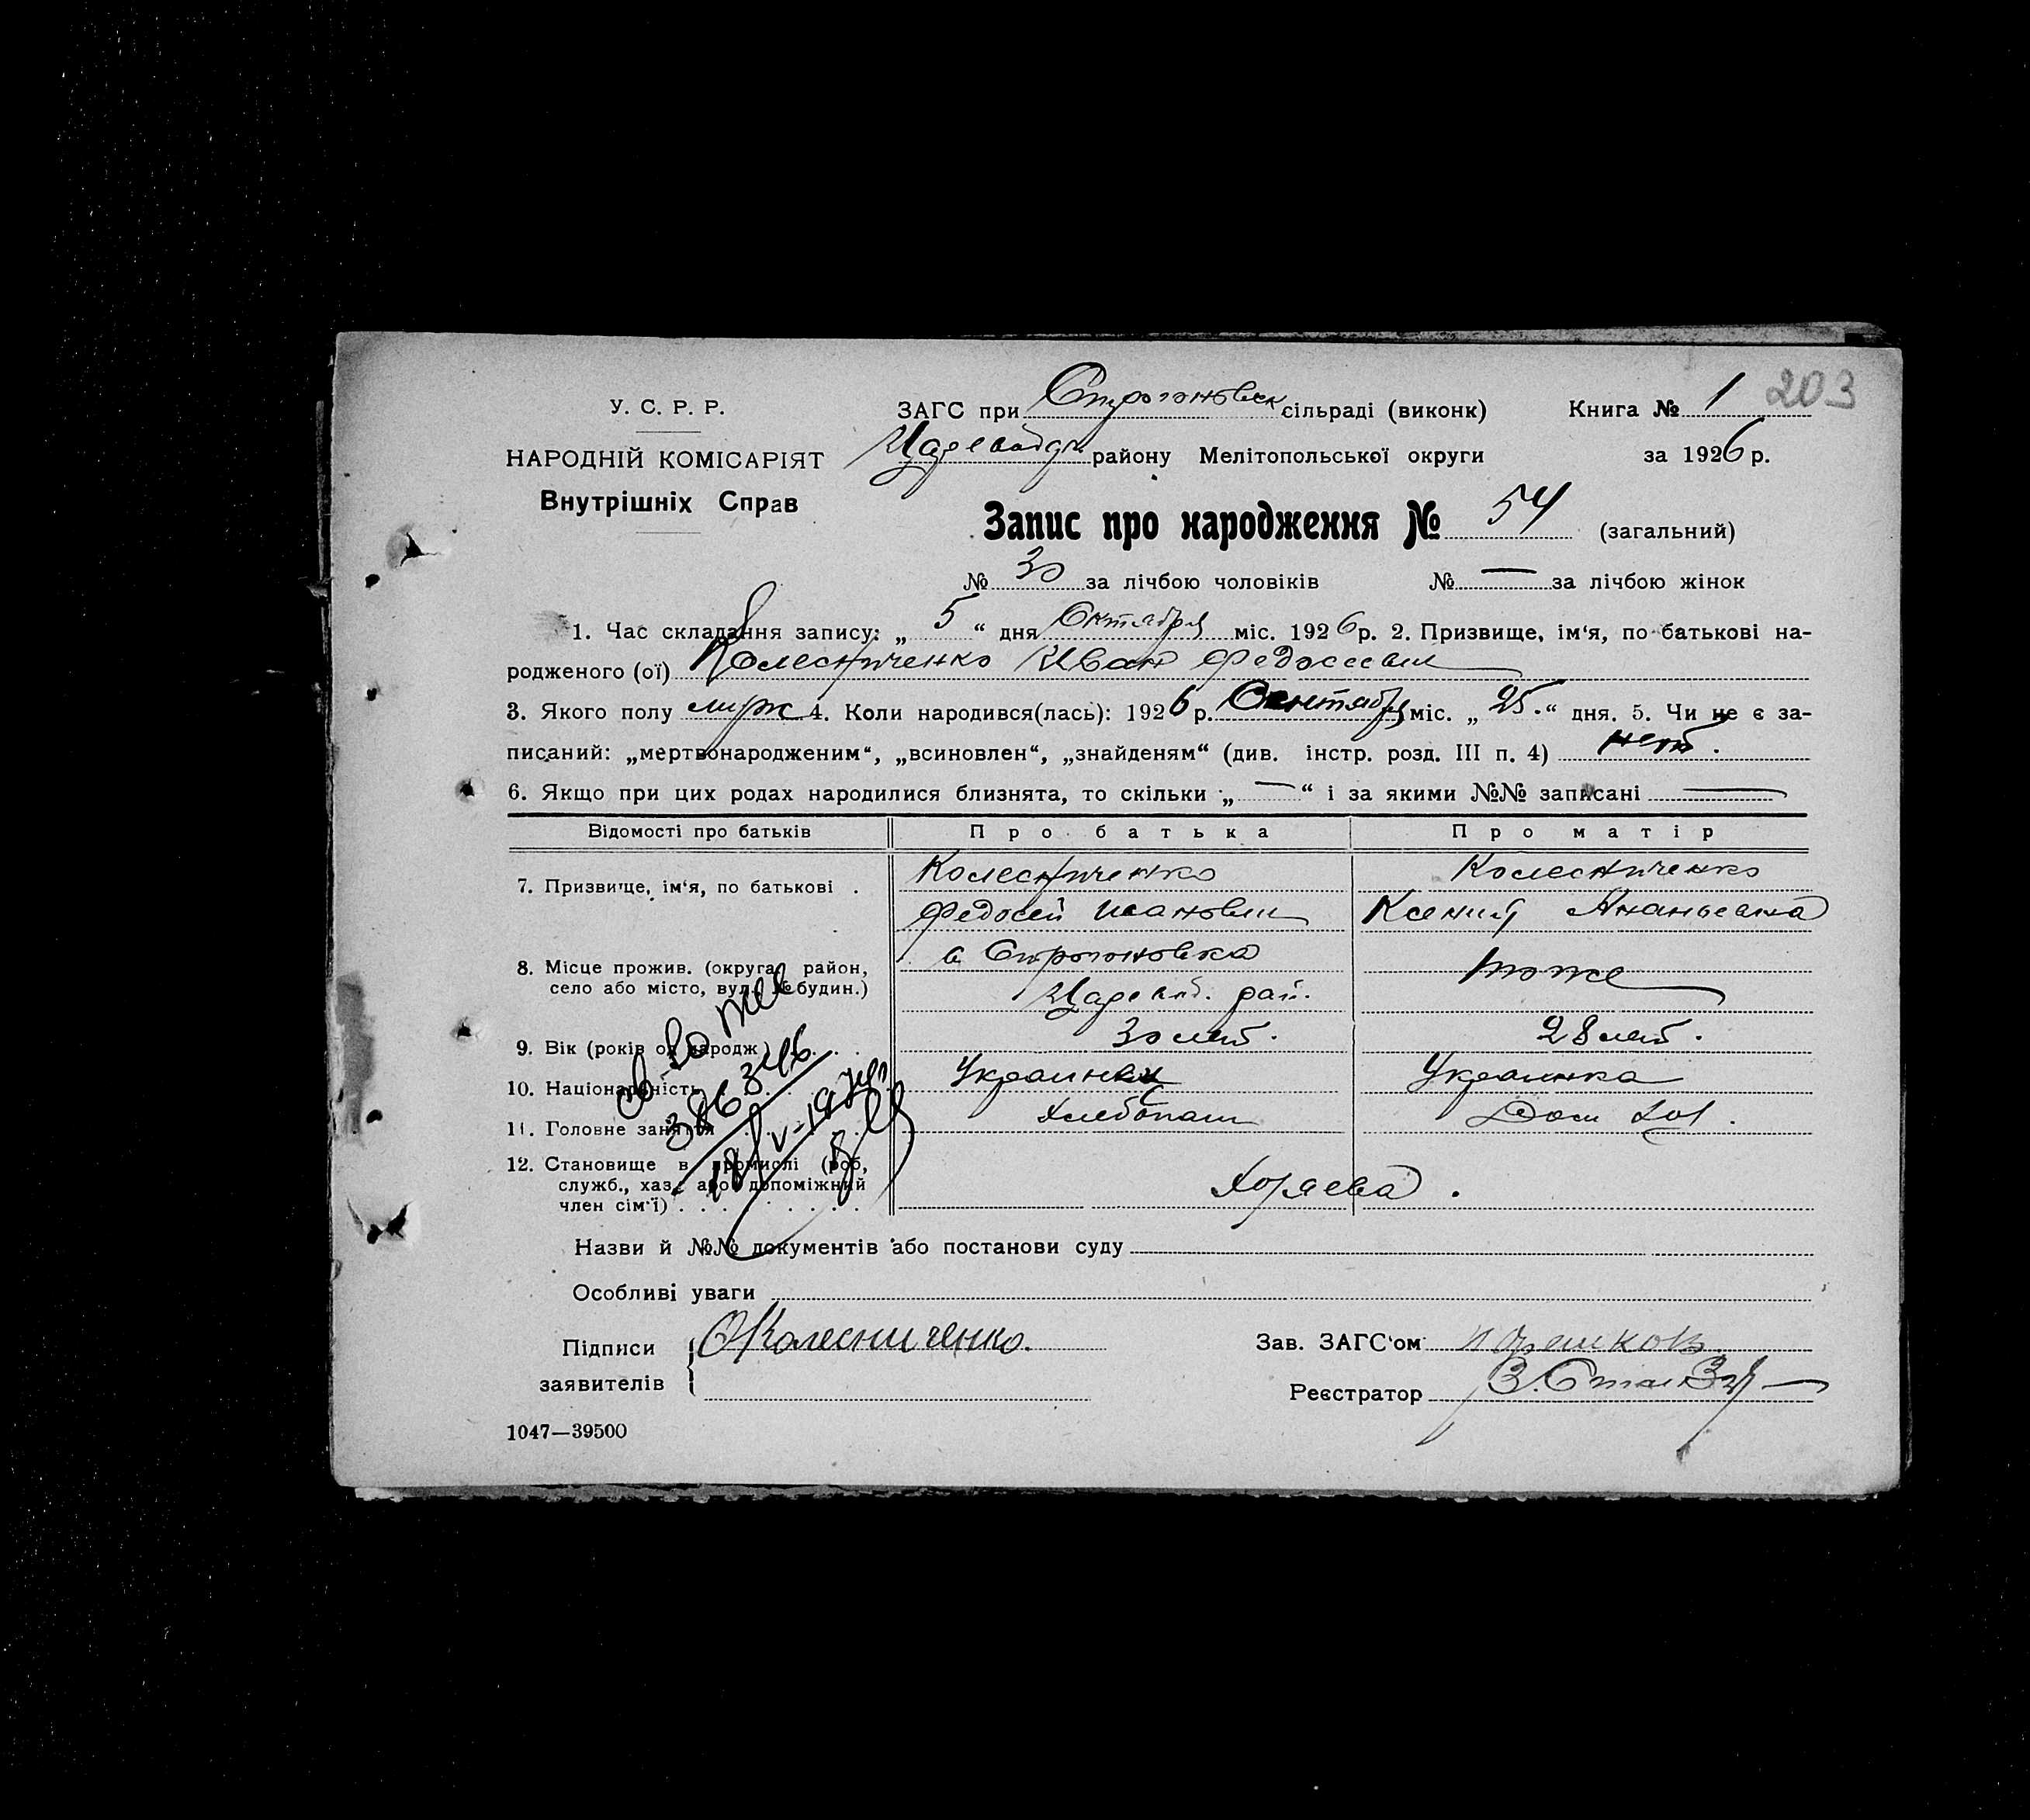 У. С. Р. Р.
НАРОДНІЙ КОМІСАРІЯТ
Внутрішніх Справ
ЗАГС при Строгоновск сільраді (виконк) Книга № 1 203
району Мелітопольської округи за 1926 р.
Запис про народження № 54 (загальний)
№ 30 за лічбою чоловіків № — за лічбою жінок
1. Час складання запису: „ 5 “ дня Октября міс. 1926 р. 2. Призвище, ім‘я, по батькові на-
родженого (ої) Колесниченко Иван Федосеевич
3. Якого полу муж 4. Коли народився(лась): 1926 р. міс. „ 25. “ дня. 5. Чи не є за-
писаний: „мертвонародженим“, „всиновлен“, „знайденям“ (див. інстр. розд. III п. 4) нет.
6. Якщо при цих родах народилися близнята, то скільки „ — “ і за якими №№ записані —
Відомості про батьків Про батька Про матір
7. Призвище, ім‘я, по батькові . Колесниченко Колесниченко
Федосей Иванович Ксения Ананьевна
8. Місце прожив. (округа, район, с Строгоновка тоже
село або місто, вул. № будин.) рай.
9. Вік (років од народж.) 30 лет. 28 лет.
10. Національність Украинец Украинка
11. Головне заняття Хлебопаш Дом хоз.
12. Становище в промислі (роб,
служб., хаз., або допоміжний
член сім‘ї) . . . . . . . . .
св-во
386346
18/V-19
Назви й №№ документів або постанови суду
Особливі уваги
Підписи Колесниченко. Зав. ЗАГС‘ом
заявителів Реєстратор
1047—39500